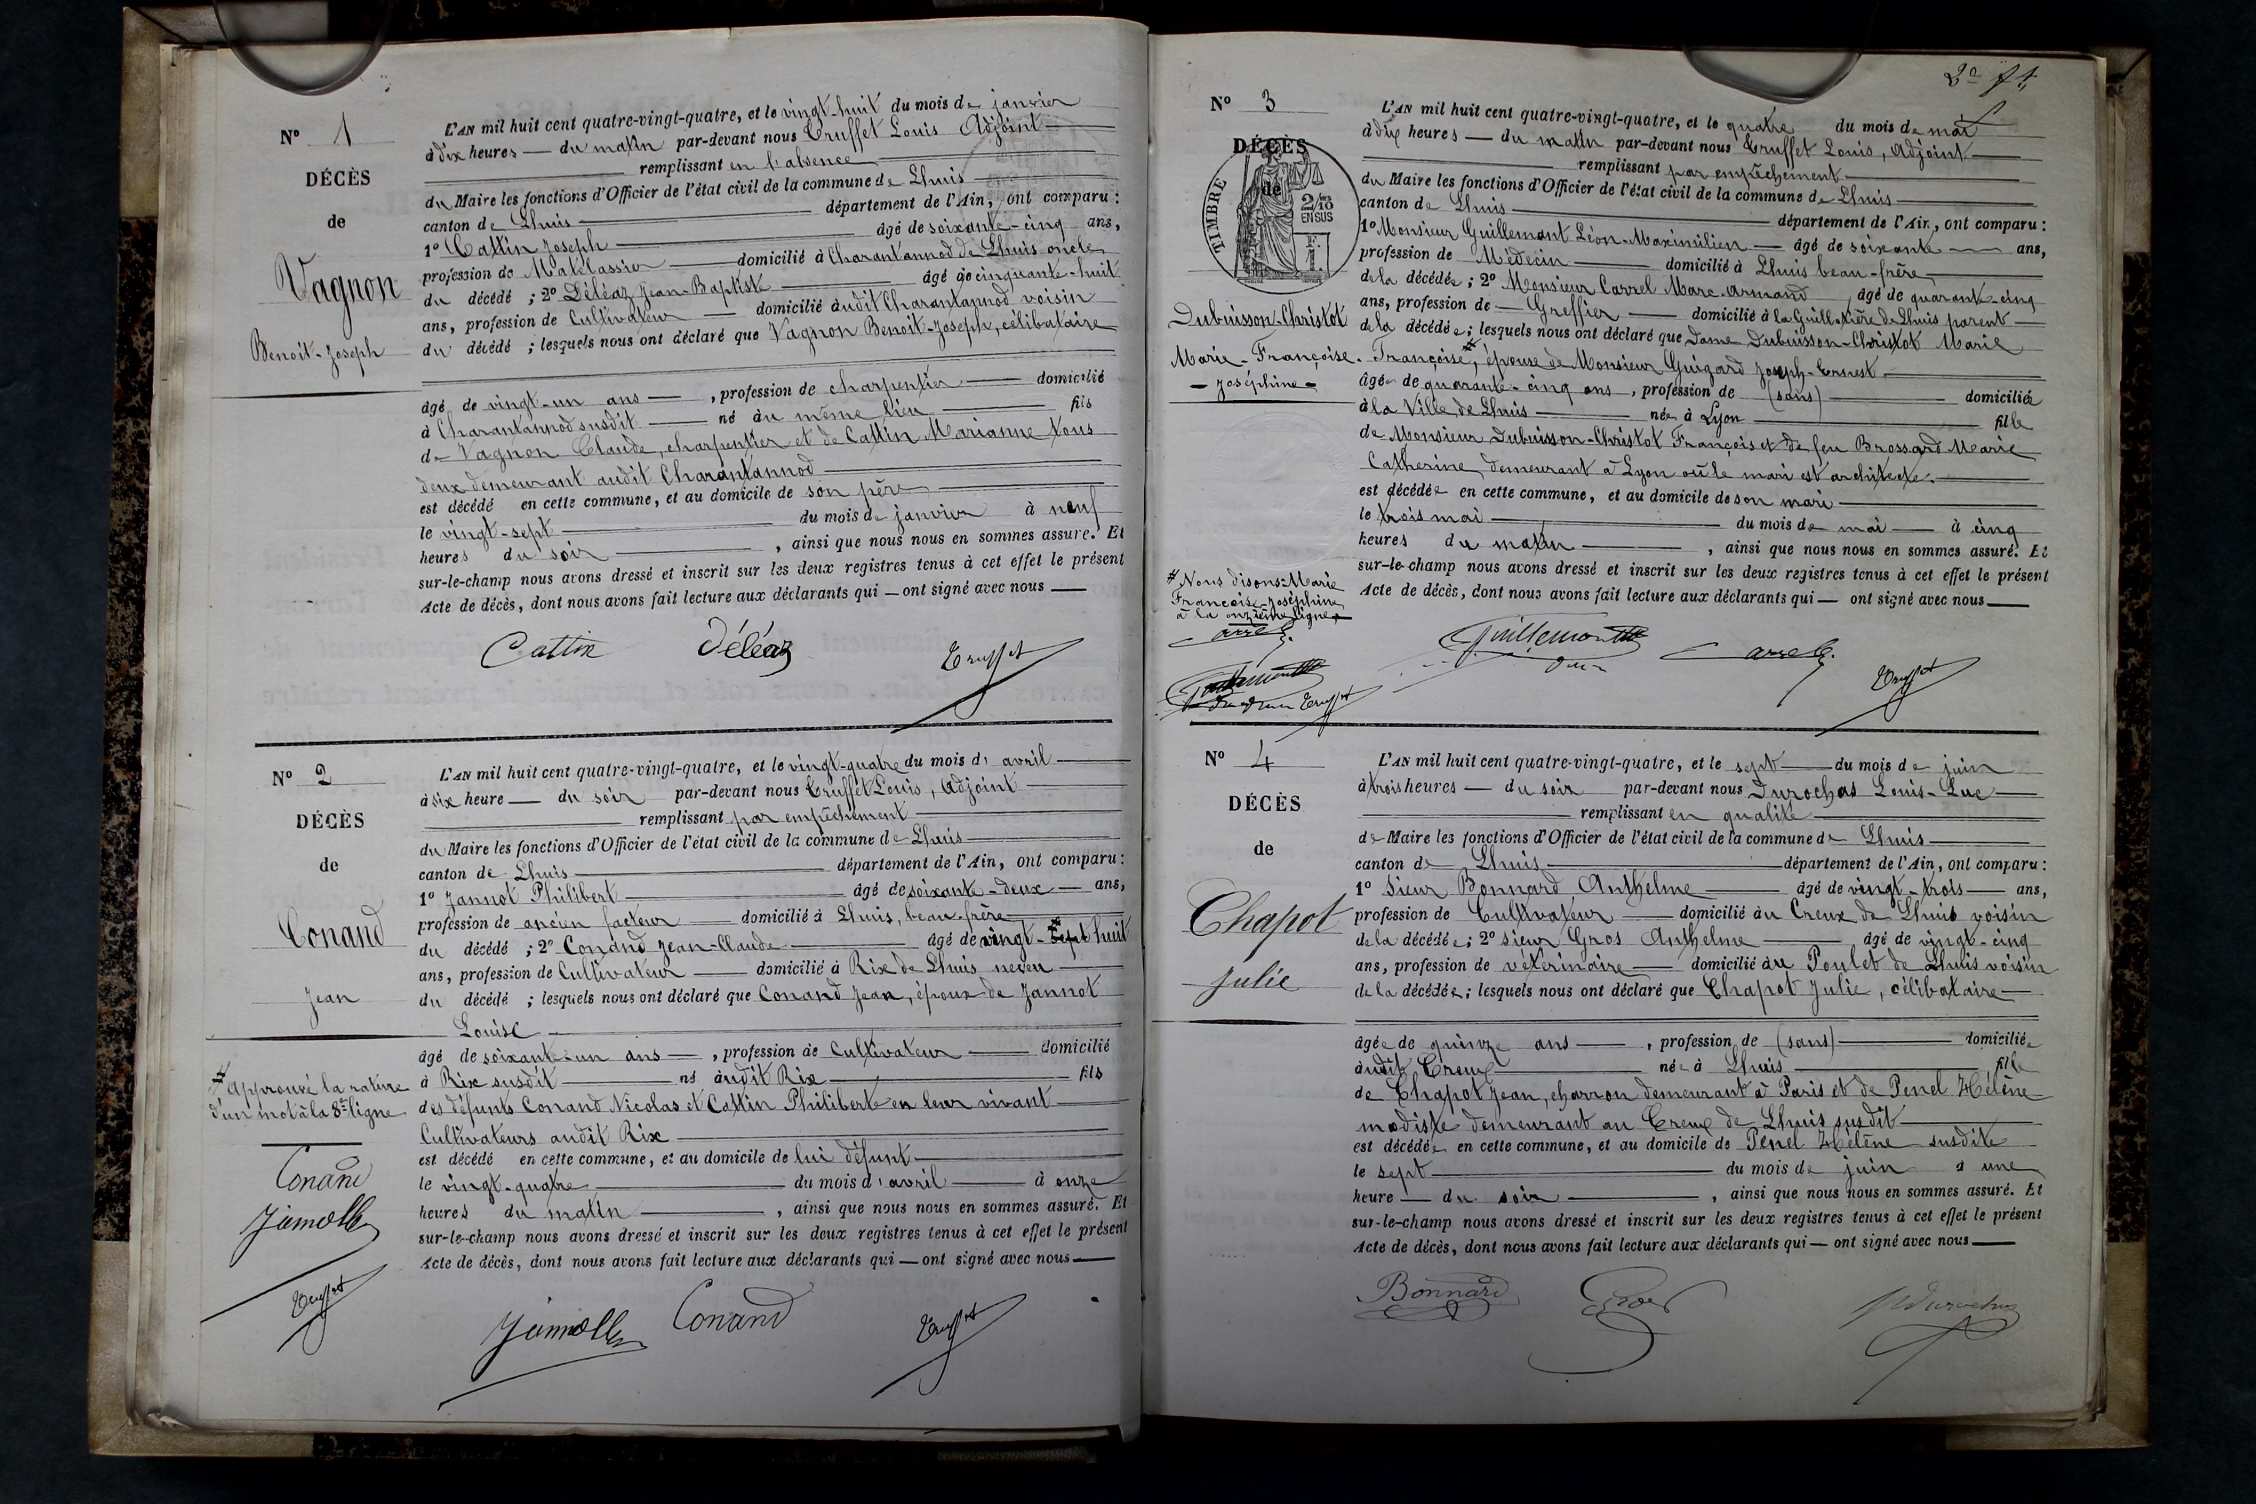 N° 1
DÉCÈS
de
Vagnon
Benoit-Joseph
L'AN mil huit cent quatre-vingt-quatre, et le vingt-huit du mois de janvier
à dix heures — du matin par-devant nous Truffet Louis Adjoint
remplissant en l'absence
du Maire les fonctions d'Officier de l'état civil de la commune de Lhuis
canton de Lhuis département de l'Ain, ont comparu :
1° Cattin Joseph âgé de soixante-cinq ans,
profession de Matelassier domicilié à Charantannod de Lhuis oncle
du décédé ; 2° Déléaz Jean-Baptiste âgé de cinquante-huit
ans, profession de Cultivateur domicilié audit Charantannod voisin
du décédé ; lesquels nous ont déclaré que Vagnon Benoit-Joseph, célibataire
âgé de vingt-un ans, profession de charpentier domicilié
à Charantannod susdit né au même lieu fils
de Vagnon Claude, charpentier et de Cattin Marianne tous
deux demeurant audit Charantannod
est décédé en cette commune, et au domicile de son père
le vingt-sept du mois de janvier à neuf
heures du soir, ainsi que nous nous en sommes assuré. Et
sur-le-champ nous avons dressé et inscrit sur les deux registres tenus à cet effet le présent
Acte de décès, dont nous avons fait lecture aux déclarants qui — ont signé avec nous
Cattin Déléaz Truffet
N° 2
DÉCÈS
de
Conand
Jean
# Approuvé la rature
d'un mot à la 8e ligne
Conand
Jannot
Truffet
L'AN mil huit cent quatre-vingt-quatre, et le vingt-quatre du mois d'avril
à six heure — du soir par-devant nous Truffet Louis, Adjoint
remplissant par empêchement
du Maire les fonctions d'Officier de l'état civil de la commune de Lhuis
canton de Lhuis département de l'Ain, ont comparu :
1° Jannot Philibert âgé de soixante-deux ans,
profession de ancien facteur domicilié à Lhuis, beau-frère
du décédé ; 2° Conand Jean-Claude âgé de vingt-sept # huit
ans, profession de Cultivateur domicilié à Rix de Lhuis neveu
du décédé ; lesquels nous ont déclaré que Conand Jean, époux de Jannot
Louise
âgé de soixante-un ans, profession de Cultivateur domicilié
à Rix susdit né audit Rix fils
des défunts Conand Nicolas et Cattin Philiberte en leur vivant
Cultivateurs audit Rix
est décédé en cette commune, et au domicile de lui défunt
le vingt-quatre du mois d'avril à onze
heures du matin, ainsi que nous nous en sommes assuré. Et
sur-le-champ nous avons dressé et inscrit sur les deux registres tenus à cet effet le présent
Acte de décès, dont nous avons fait lecture aux déclarants qui — ont signé avec nous
Jannot Conand Truffet
N° 3
DÉCÈS
de
TIMBRE
2/10
EN SUS
F.
1
Dubuisson-Christot
Marie-Françoise-
Joséphine
# Nous disons: Marie
Françoise-Joséphine
à la onzième ligne
Carrel
Guillemont
Truffet
L'AN mil huit cent quatre-vingt-quatre, et le quatre du mois de mai
à dix heures — du matin par-devant nous Truffet Louis, Adjoint
remplissant par empêchement
du Maire les fonctions d'Officier de l'état civil de la commune de Lhuis
canton de Lhuis département de l'Ain, ont comparu :
1° Monsieur Guillemont Léon-Maximilien âgé de soixante ans,
profession de Médecin domicilié à Lhuis beau-frère
de la décédée ; 2° Monsieur Carrel Marc-Armand, âgé de quarante-cinq
ans, profession de Greffier domicilié à la Guillotière de Lhuis parent
de la décédée ; lesquels nous ont déclaré que Dame Dubuisson-Christot Marie
Françoise #, épouse de Monsieur Guigard Joseph-Ernest
âgée de quarante-cinq ans, profession de (sans) domiciliée
à la Ville de Lhuis née à Lyon fille
de Monsieur Dubuisson-Christot François et de feu Brossard Marie
Catherine, demeurant à Lyon où le mari est architecte.
est décédée en cette commune, et au domicile de son mari
le trois mai du mois de mai à cinq
heures du matin, ainsi que nous nous en sommes assuré. Et
sur-le-champ nous avons dressé et inscrit sur les deux registres tenus à cet effet le présent
Acte de décès, dont nous avons fait lecture aux déclarants qui — ont signé avec nous
Guillemont Carrel Truffet
N° 4
DÉCÈS
de
Chapot
Julie
L'AN mil huit cent quatre-vingt-quatre, et le sept du mois de juin
à trois heures — du soir par-devant nous Durochas Louis-Luc
remplissant en qualité
de Maire les fonctions d'Officier de l'état civil de la commune de Lhuis
canton de Lhuis département de l'Ain, ont comparu :
1° Sieur Bonnard Anthelme âgé de vingt-trois ans,
profession de Cultivateur domicilié au Creux de Lhuis voisin
de la décédée ; 2° Sieur Gros Anthelme âgé de vingt-cinq
ans, profession de vétérinaire domicilié au Poulet de Lhuis voisin
de la décédée ; lesquels nous ont déclaré que Chapot Julie, célibataire
âgée de quinze ans, profession de (sans) domiciliée
audit Creux née à Lhuis fille
de Chapot Jean, charron demeurant à Paris et de Penel Hélène
modiste demeurant au Creux de Lhuis susdit
est décédée en cette commune, et au domicile de Penel Hélène susdite
le sept du mois de juin à une
heure — du soir, ainsi que nous nous en sommes assuré. Et
sur-le-champ nous avons dressé et inscrit sur les deux registres tenus à cet effet le présent
Acte de décès, dont nous avons fait lecture aux déclarants qui — ont signé avec nous
Bonnard Gros